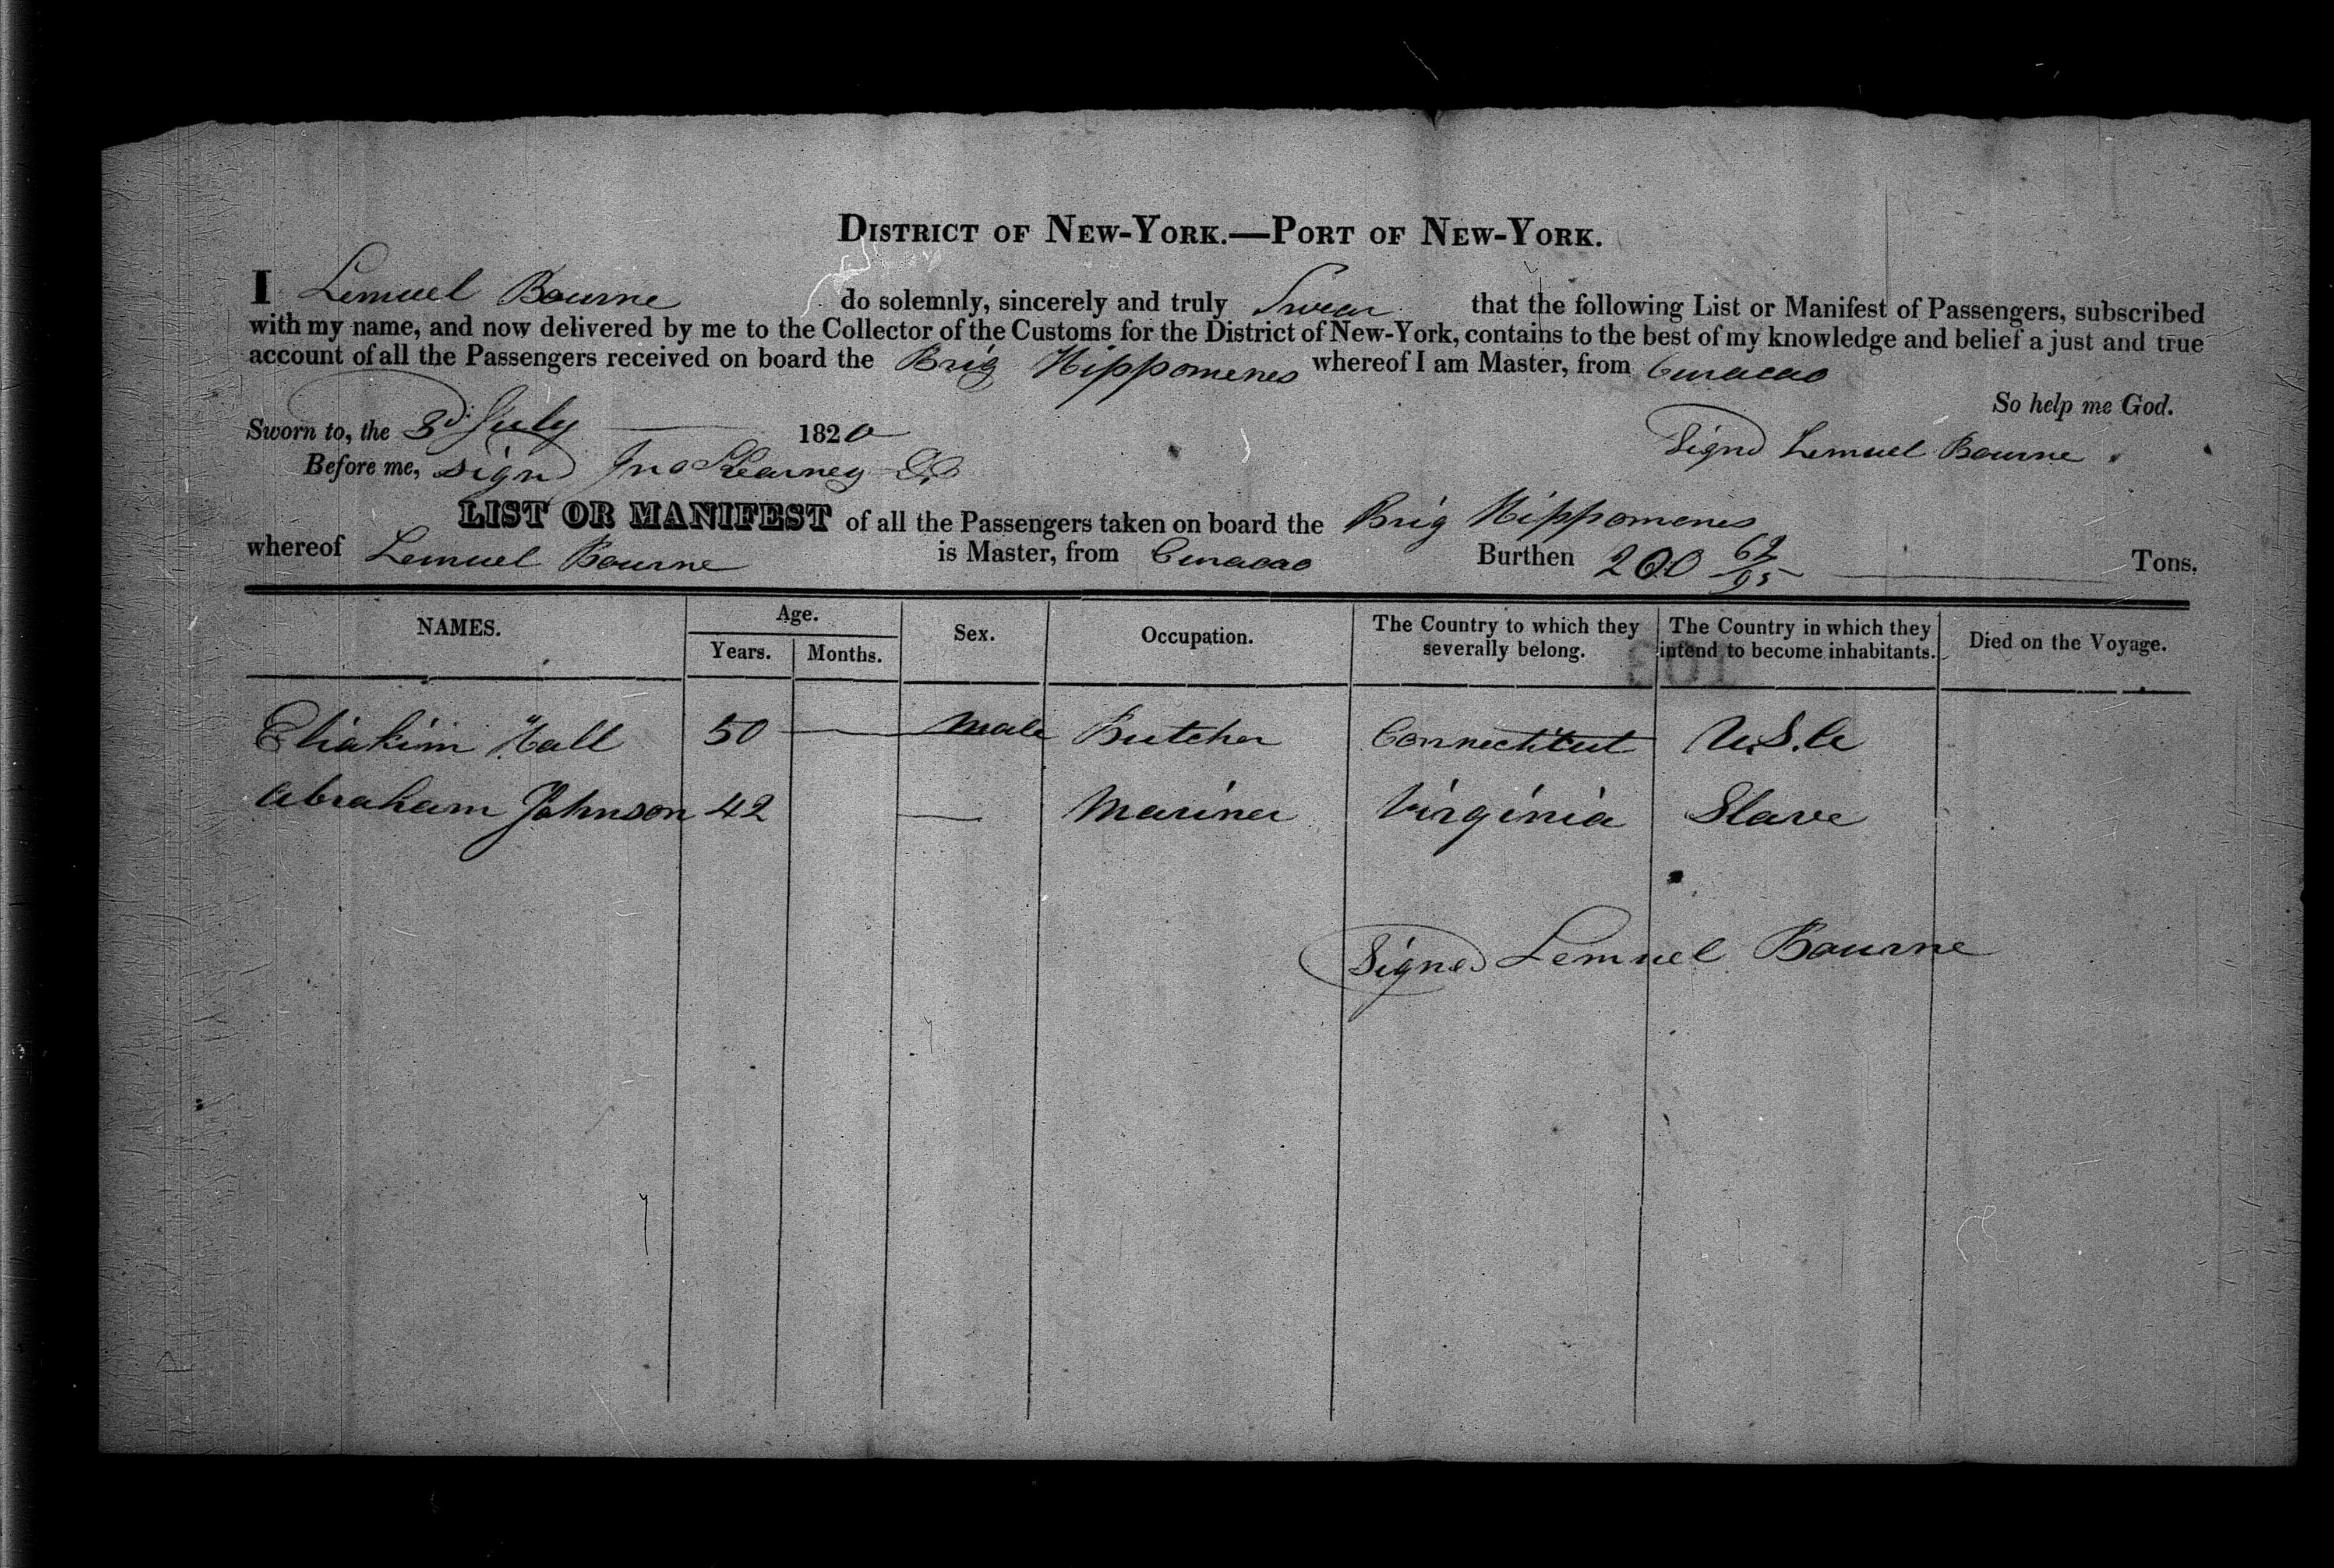 DISTRICT OF NEW-YORK.—PORT OF NEW-YORK.
I Lemuel Bourne do solemnly, sincerely and truly Swear that the following List or Manifest of Passengers, subscribed
with my name, and now delivered by me to the Collector of the Customs for the District of New-York, contains to the best of my knowledge and belief a just and true
account of all the Passengers received on board the Brig Hippomenes whereof I am Master, from Curacao
So help me God.
Sworn to, the 3d July 1820
Signd Lemuel Bourne
Before me, sign Jno Kearney
LIST OR MANIFEST of all the Passengers taken on board the Brig Hippomenes
whereof Lemuel Bourne is Master, from Curacao Burthen 200 62/95 Tons.
NAMES. Age. Years. Months. Sex. Occupation. The Country to which they severally belong. The Country in which they intend to become inhabitants. Died on the Voyage.
Eliakim Hall 50 — Male Butcher Connecticut U.S.A
Abraham Johnson 42 — Mariner Virginia Slave
Signed Lemuel Bourne